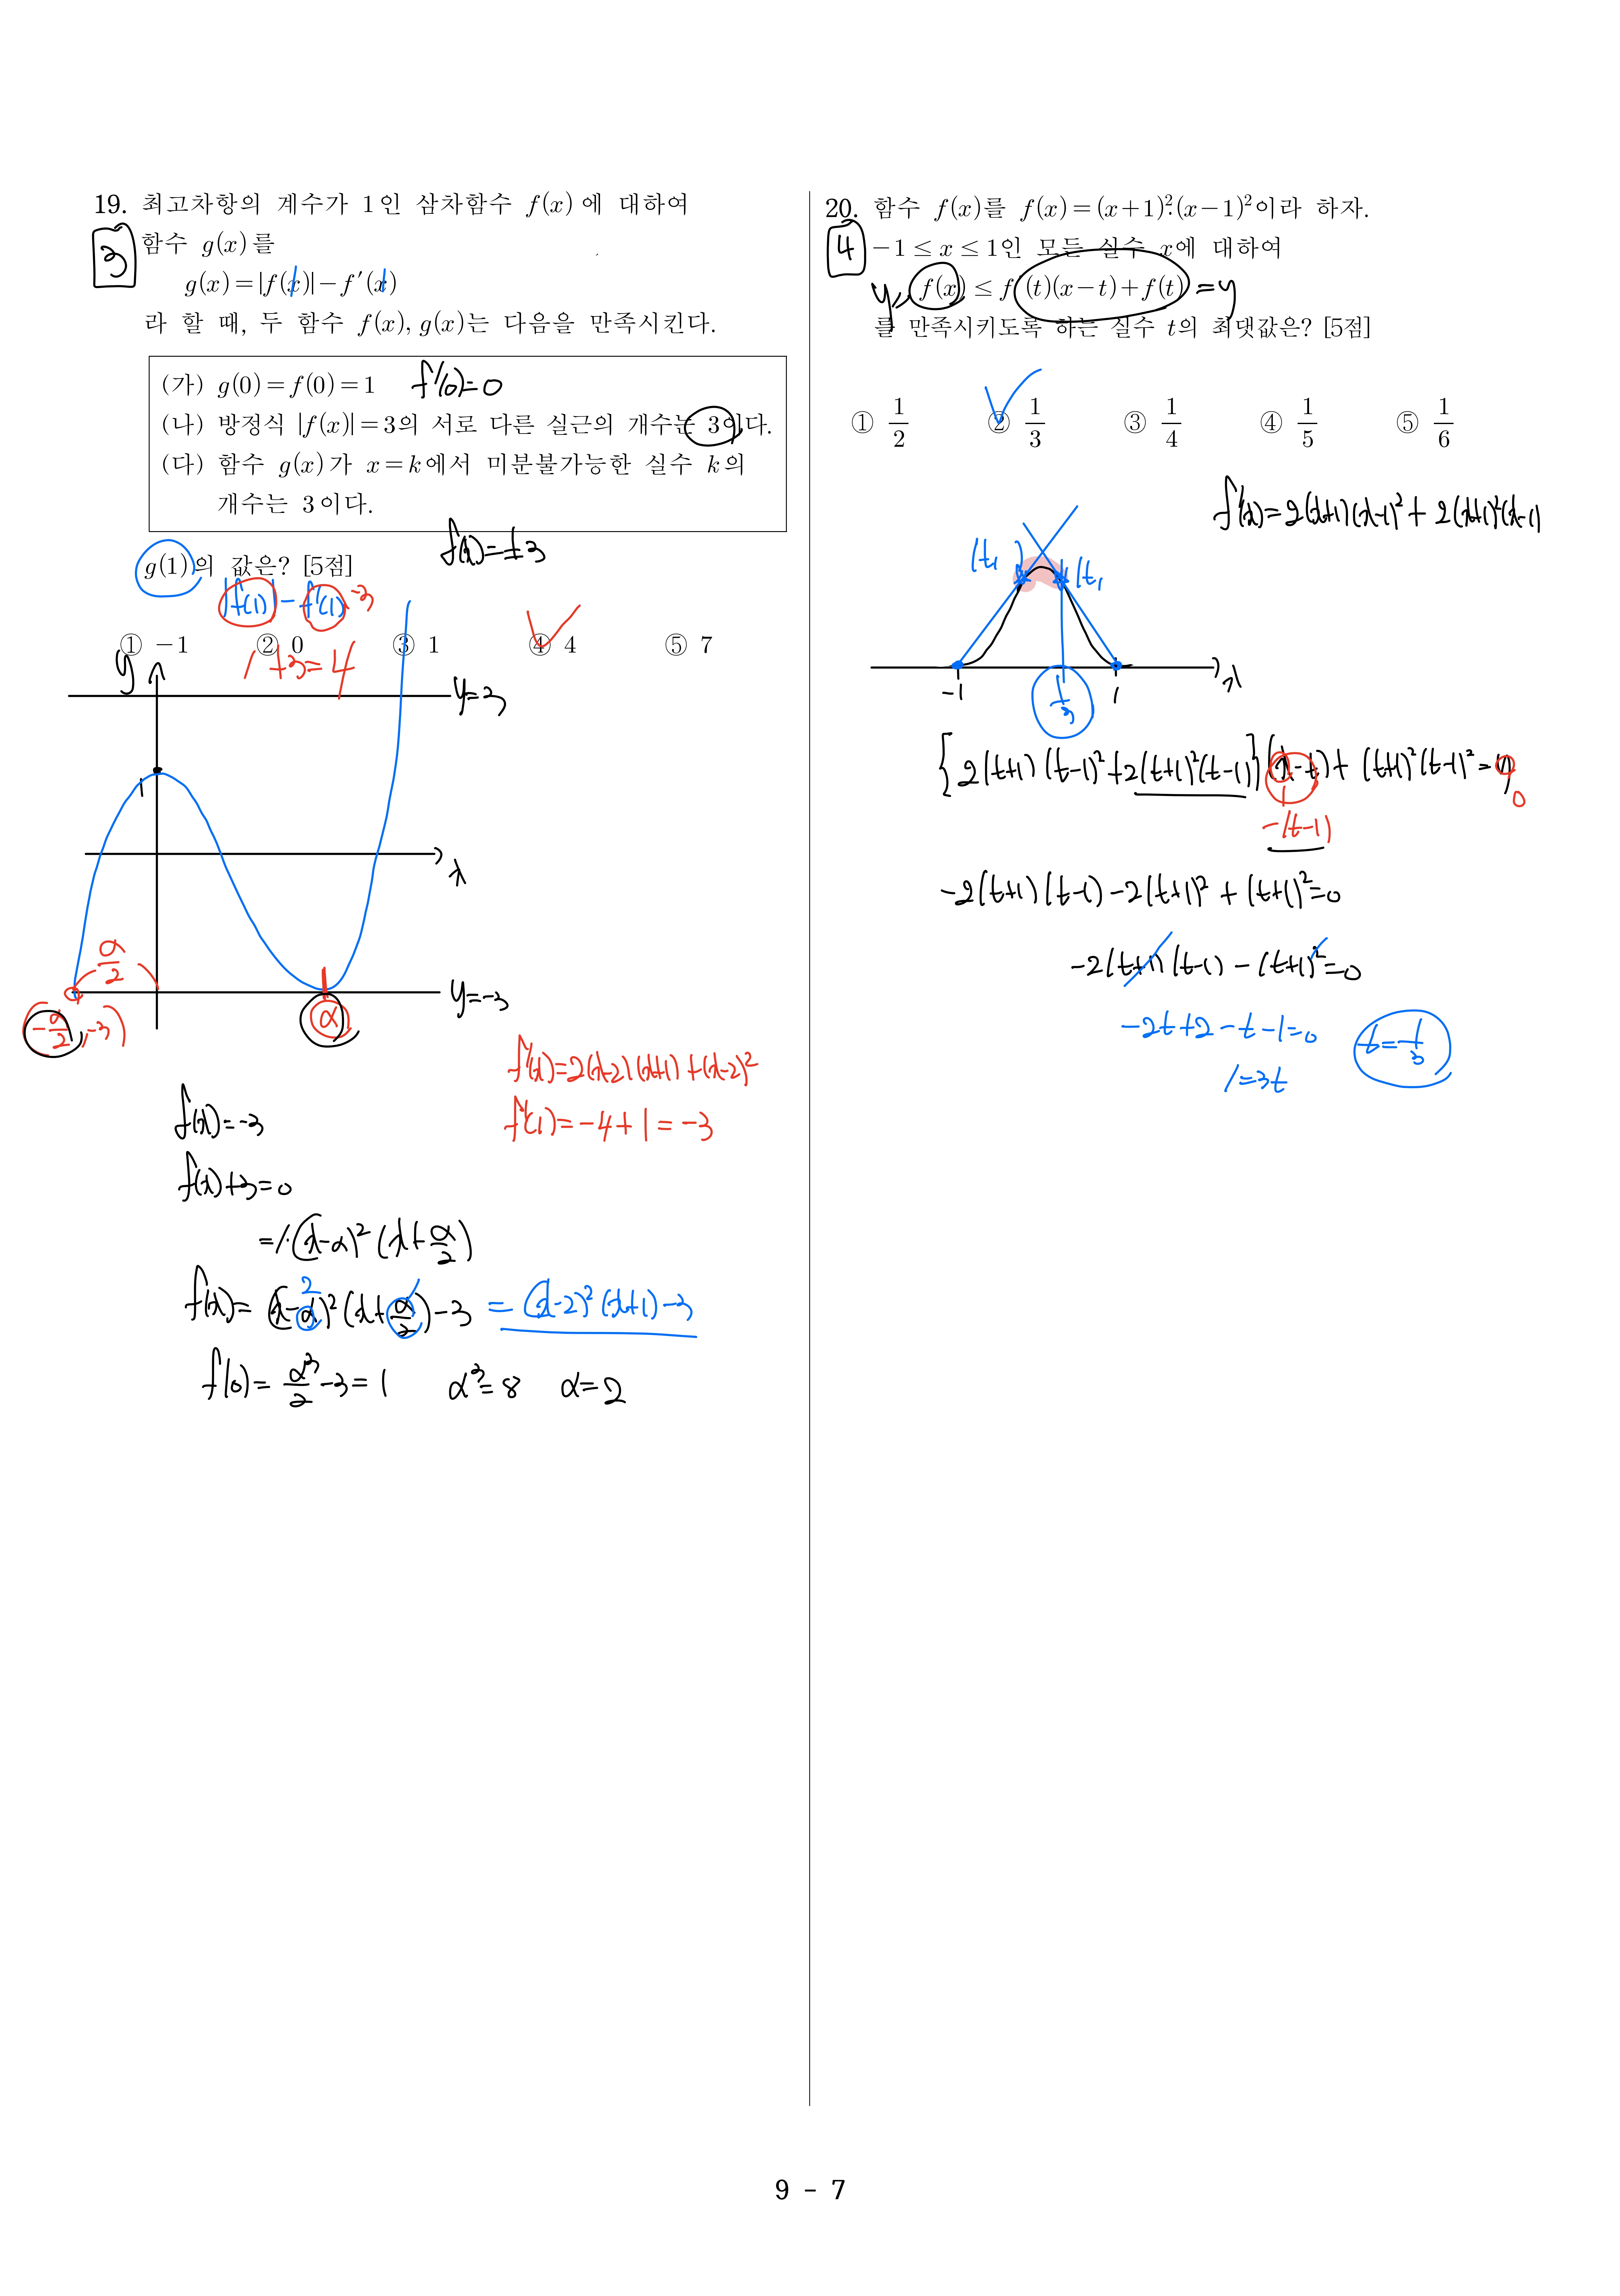 19. 최고차항의 계수가 1인 삼차함수 f(x)에 대하여
3
함수 g(x)를
g(x)=|f(x)|−f′(x)
라 할 때, 두 함수 f(x), g(x)는 다음을 만족시킨다.
(가) g(0)=f(0)=1 f′(0)=0
(나) 방정식 |f(x)|=3의 서로 다른 실근의 개수는 3이다.
(다) 함수 g(x)가 x=k에서 미분불가능한 실수 k의
개수는 3이다.
f(x)=±3
g(1)의 값은? [5점]
|f(1)|−f′(1) -3
① −1 ② 0 ③ 1 ④ 4 ⑤ 7
1+3=4
y
y=3
1
x
α/2
y=-3
(-α/2, -3)
α
f′(x)=2(x-2)(x+1)+(x-2)²
f′(1)=-4+1=-3
f(x)=-3
f(x)+3=0
=1·(x-α)²(x+α/2)
2 1
f(x)=(x-α)²(x+α/2)-3 =(x-2)²(x+1)-3
f(0)=α³/2-3=1 α³=8 α=2
20. 함수 f(x)를 f(x)=(x+1)²(x−1)²이라 하자.
4
−1≤x≤1인 모든 실수 x에 대하여
f(x)≤f′(t)(x−t)+f(t) =y
y=
를 만족시키도록 하는 실수 t의 최댓값은? [5점]
① 1/2 ② 1/3 ③ 1/4 ④ 1/5 ⑤ 1/6
f′(x)=2(x+1)(x-1)²+2(x+1)²(x-1)
(t, ) (t,
-1 1 x
1/3
{2(t+1)(t-1)²+2(t+1)²(t-1)}(x-t)+(t+1)²(t-1)²=y
1 0
-(t-1)
-2(t+1)(t-1)-2(t+1)²+(t+1)²=0
-2(t+1)(t-1)-(t+1)²=0
-2t+2-t-1=0 t=1/3
1=3t
9 - 7